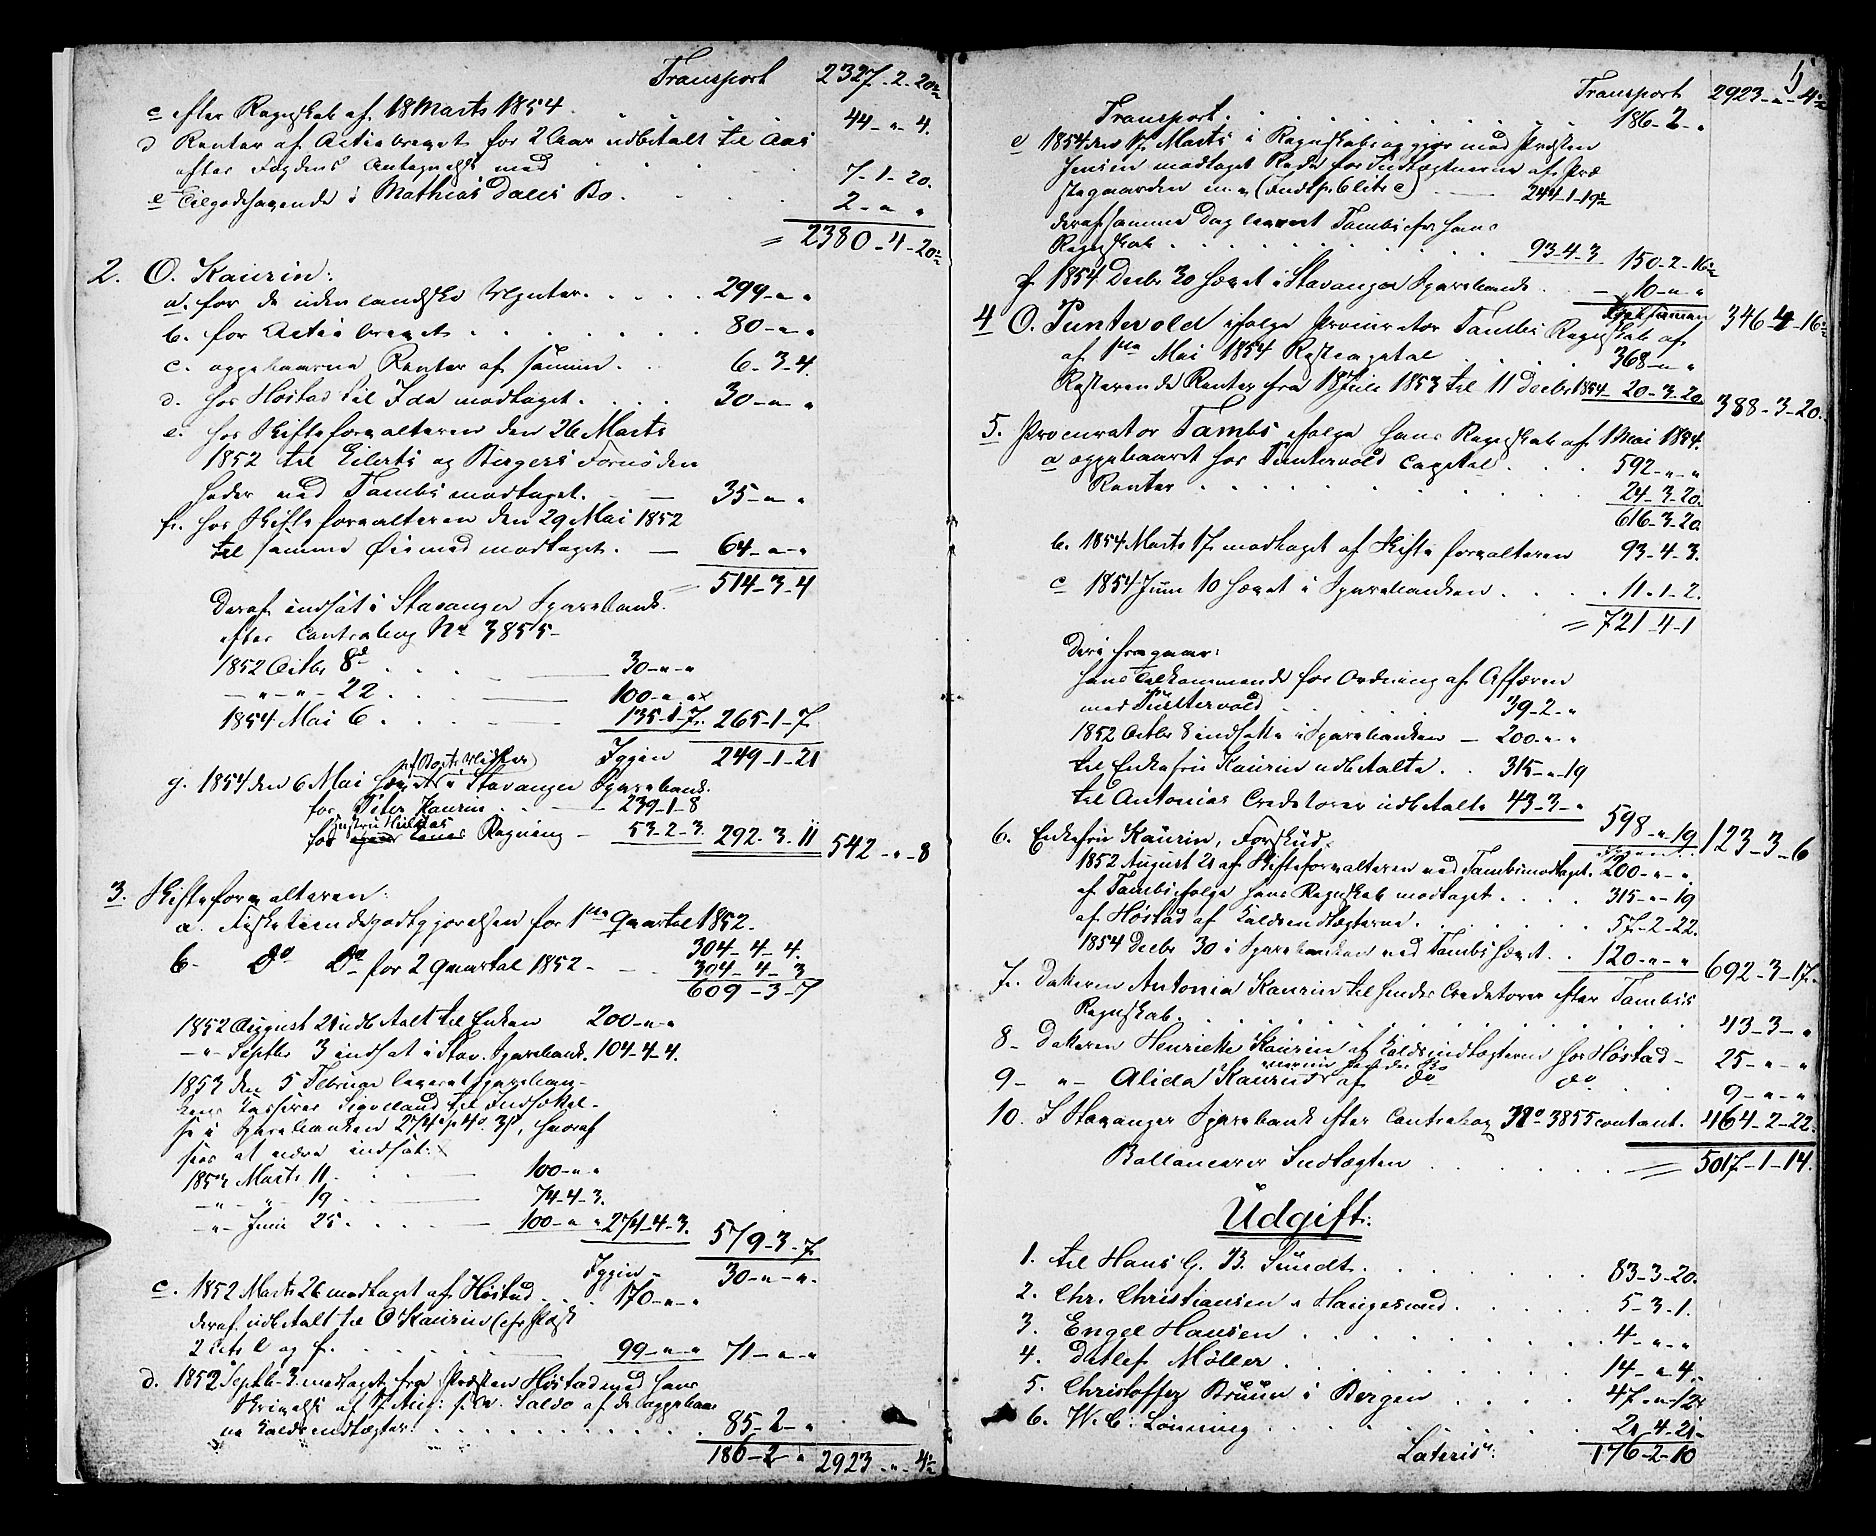 Transport 2327-2-20½
c efter Regnskab af 18 Marts 1854 . . . 44-"-4.
d Renter af Actiebrevet for 2 Aar udbetalt til Aas
efter Fogdens Antegnelse med . . . 7-1-20.
e Tilgodehavende i Mathias Dales Bo . . . 2-"-"
= 2380-4-20½
2. O. Kaurin:
a. for de udenlandske . . . 299-"-"
b. for Actiebrevet . . . 80-"-"
c. oppebaarne Renter af samme . . . 6-3-4.
d. hos Høstad til Ida modtaget . . . 30-"-"
e. hos Skifteforvalteren den 26 Marts
1852 til Eilerts og Birgers Fornøden
heder ved Tambs modtaget. — 35-"-"
f. hos Skifteforvalteren den 29 Mai 1852
til samme Øiemed modtaget. — 64-"-"
514-3-4
Deraf indsat i Stavanger Sparebank
efter Contrabog No 3855-
1852 Octbr 8de . . . 30-"-"
-"-"- 22 . . . 100-"-"
1854 Mai 6 . . . 135-1-7. 265-1-7.
Igjen 249-1-21
g. 1854 den 6 Mai hævet i Stavanger Sparebank
for Peter Kaurin . . . 239-1-8
for Regning — 53-2-3. 292-3-11 542-"-8
3. Skifteforvalteren:
a. Fisketiendegodtgjørelsen for 1ste Quartal 1852. 304-4-4.
b- Do Do for 2 Quartal 1852 - . . 304-4-3
609-3-7
1852 August 21 udbetalt til Enken 200-"-"
-"- Septbr 3 indsat i Stav. Sparebank. 104-4-4.
1853 den 5 Februar leveret Spareban-
kens Kasserer Sigvelland til Indsættel-
se i Sparebanken 274 4 3, hvoraf
sees at være indsat:
1853 Marts 11 . . . 100-"-"
-"-"- 19 . . . 74-4-3.
-"- Juni 25 . . . 100-"-" 274-4-3. 579-3-7.
Igjen - 30-"-"-
c. 1852 Marts 26 modtaget af Høstad . . . 170-"-"
deraf udbetalt til O Kaurin (cfr Post
2 Litr e og f. . . . 99-"-" 71-"-"
d. 1852 Septbr 3. modtaget fra Præsten Høstad med hans
Skrivelse af Saldo af de oppebaar
ne Kaldsindtægter . . . 85-2-"
186-2-" 2923-"-4½
5
Transport 2923-"-4½
Transport . . . 186-2-"
e 1854 den 17 Marts i Regnskabsopgjør med Præsten
Jensen modtaget Rede for Indtægterne af Præ
stegaarden m. v. (Indt. p. 6 litr c) — 244-1-19½
deraf samme Dag leveret Tambs cfr hans
Regnskab . . . 93-4-3 150-2-16½
f 1854 Decbr 30 hævet i Stavanger Sparebank . — 10-"-"
346-4-16½
4 O. Puntervold ifølge Procurator Tambs Regnskab af
af 1ste Mai 1854 Restcapital . . . 368-"-"
Resterende Renter fra 18 Juli 1853 til 11 Decbr 1854 20-3-20. 388-3-20.
5. Procurator Tambs ifølge hans Regnskab af 1 Mai 1854.
a oppebaaret hos Puntervold Capital . . . 592-"-"
Renter . . . 24-3-20.
616-3-20.
b. 1854 Marts 17 modtaget af Skifteforvalteren 93-4-3.
c 1854 Juni 10 hævet i Sparebanken . . . 11-1-2.
= 721-4-1
Deri fragaar:
hans Tilkommende for Ordning af Affæren
med Puntervold . . . 39-2-"
1852 Octbr 8 indsatte i Sparebanken — 200-"-"
til Enkefru Kaurin udbetalte . . 315-"-19
til Antonias Creditorer udbetalte 43-3-" 598-"-19 123-3-6
6. Enkefru Kaurin, Forskud.
1852 August 21 af Skifteforvalteren ved Tambs modtaget. 200-"-"
af Tambs ifølge hans Regnskab modtaget . . . 315-"-19
af Høstad af Kaldsindtægterne . . . 57-2-22.
1854 Decbr 30 i Sparebanken ved Tambs hævet . . 120-"-" 692-3-17.
7. Datteren Antonia Kaurin til hendes Creditorer efter Tambs's
Regnskab . . . 43-3-"
8- Datteren Henrikke Kaurin af Kaldsindtægterne hos Høstad - 25-"-"
9- -"- Alida Kaurin af do do . . . 9-"-"
10. I Stavanger Sparebank efter Contrabog No 3855 contant. 464-2-22.
Ballancerer Indtægten . . . = 5017-1-14.
Udgift:
1. til Hans G. B. Sundt . . . 83-3-20.
2. Chr. Christiansen, Haugesund . . . 5-3-1.
3. Engel Hansen . . . 4-"-"
4. Detlef Møller . . . 14-"-4
5. Christoffer Bruun i Bergen . . . 47-"-12
6. W. C. Lönning . . . 21-4-21-
Lateris: 176-2-10